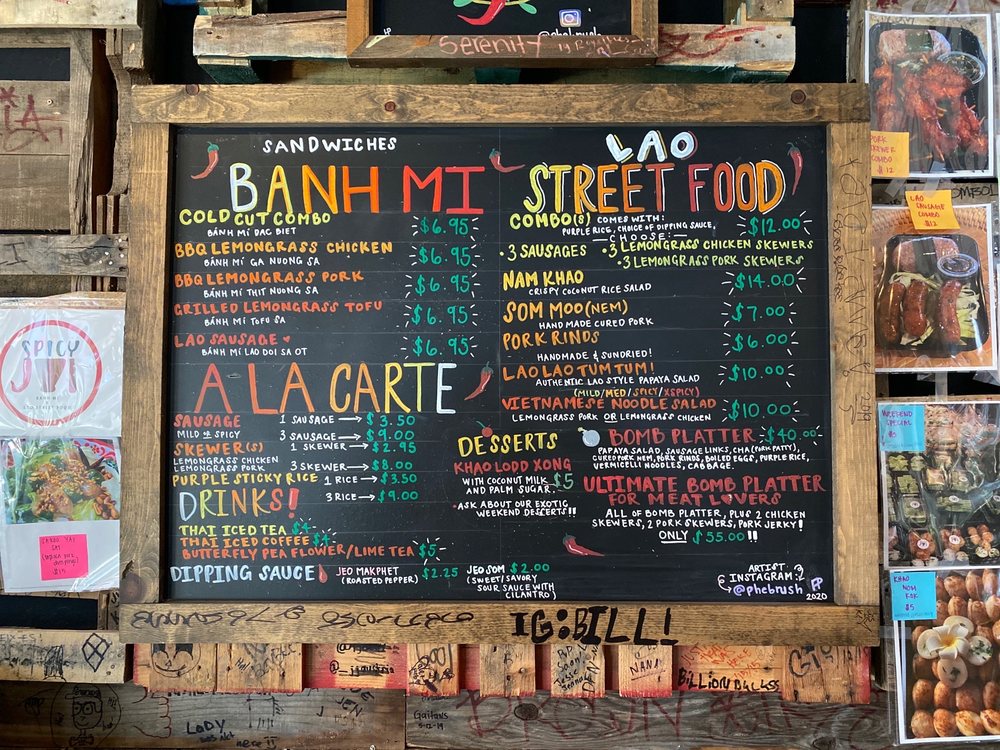 Serenity
SANDWICHES
BANH MI
COLD CUT COMBO $6.95
BÁNH MÌ DAC BIET
BBQ LEMONGRASS CHICKEN $6.95
BÁNH MÌ GA NUONG SA
BBQ LEMONGRASS PORK $6.95
BÁNH MÌ THIT NUONG SA
GRILLED LEMONGRASS TOFU $6.95
BÁNH MÌ TOFU SA
LAO SAUSAGE $6.95
BÁNH MÌ LAO DOI SA OT
A LA CARTE
SAUSAGE 1 SAUSAGE → $3.50
MILD OR SPICY 3 SAUSAGE → $9.00
SKEWER(S) 1 SKEWER → $2.95
LEMONGRASS CHICKEN
LEMONGRASS PORK 3 SKEWER → $8.00
PURPLE STICKY RICE 1 RICE → $3.50
3 RICE → $9.00
DRINKS!
THAI ICED TEA $4
THAI ICED COFFEE $4
BUTTERFLY PEA FLOWER/LIME TEA $5
DIPPING SAUCE
JEO MAKPHET $2.25
(ROASTED PEPPER)
JEO SOM $2.00
(SWEET/SAVORY
SOUR SAUCE WITH
CILANTRO)
LAO
STREET FOOD
COMBO(S) COMES WITH: $12.00
PURPLE RICE, CHOICE OF DIPPING SAUCE,
—CHOOSE:—
•3 SAUSAGES •3 LEMONGRASS CHICKEN SKEWERS
•3 LEMONGRASS PORK SKEWERS
NAM KHAO $14.00
CRISPY COCONUT RICE SALAD
SOM MOO (NEM) $7.00
HAND MADE CURED PORK
PORK RINDS $6.00
HANDMADE & SUNDRIED!
LAO LAO TUM TUM! $10.00
AUTHENTIC LAO STYLE PAPAYA SALAD
(MILD/MED/SPICY/XSPICY)
VIETNAMESE NOODLE SALAD $10.00
LEMONGRASS PORK OR LEMONGRASS CHICKEN
DESSERTS
KHAO LODD XONG
WITH COCONUT MILK $5
AND PALM SUGAR.
ASK ABOUT OUR EXOTIC
WEEKEND DESSERTS!!
BOMB PLATTER $40.00
PAPAYA SALAD, SAUSAGE LINKS, CHA (PORK PATTY),
CURED PORK NEM, PORK RINDS, BOILED EGGS, PURPLE RICE,
VERMICELLI NOODLES, CABBAGE.
ULTIMATE BOMB PLATTER
FOR MEAT LOVERS
ALL OF BOMB PLATTER, PLUS 2 CHICKEN
SKEWERS, 2 PORK SKEWERS, PORK JERKY!
ONLY $55.00!!
ARTIST:
INSTAGRAM:
@phebrush
2020
IG:BILL!
SPICY
JOI
BANH MI
LAO STREET FOOD
$15
PORK
SKEWER
COMBO
$12
LAO
SAUSAGE
COMBO
$12
WEEKEND
SPECIAL
KHAO
NOM
KOK
$5
NANI
BILLIONDOLLES
LADY